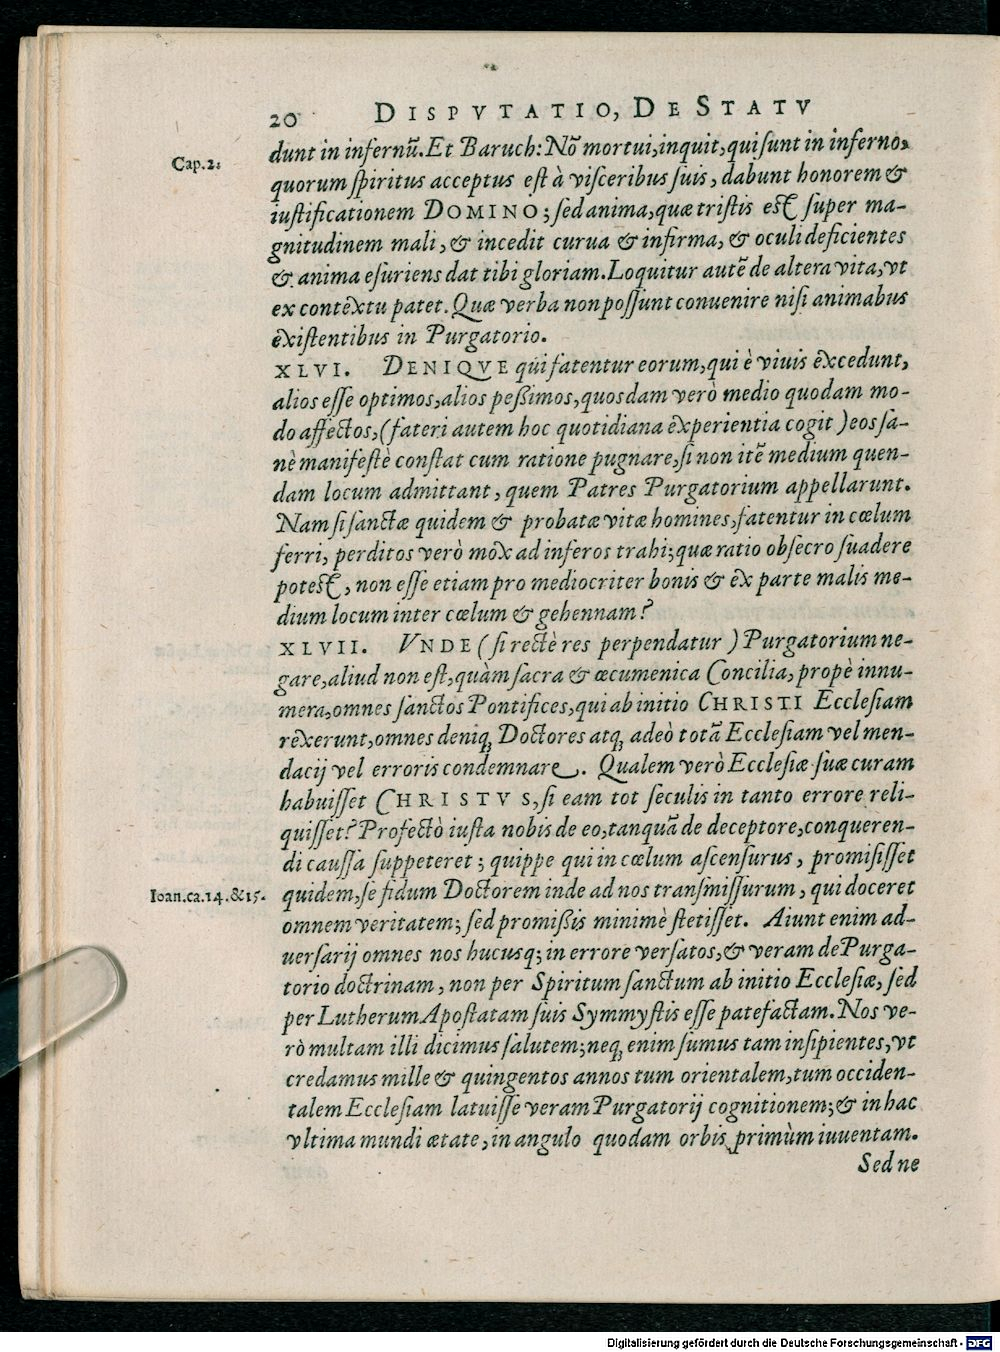 20 DISPVTATIO, DE STATV
dunt in infernū. Et Baruch: Nō mortui, inquit, qui sunt in inferno,
Cap. 2.
quorum spiritus acceptus est à visceribus suis, dabunt honorem &
iustificationem DOMINO; sed anima, quæ tristis est super ma-
gnitudinem mali, & incedit curua & infirma, & oculi deficientes
& anima esuriens dat tibi gloriam. Loquitur autē de altera vita, vt
ex contextu patet. Quæ verba non possunt conuenire nisi animabus
existentibus in Purgatorio.
XLVI. DENIQVE qui fatentur eorum, qui è viuis excedunt,
alios esse optimos, alios peßimos, quosdam verò medio quodam mo-
do affectos, (fateri autem hoc quotidiana experientia cogit) eos sa-
nè manifestè constat cum ratione pugnare, si non itē medium quen-
dam locum admittant, quem Patres Purgatorium appellarunt.
Nam si sanctæ quidem & probatæ vitæ homines, fatentur in cœlum
ferri, perditos verò mox ad inferos trahi; quæ ratio obsecro suadere
potest, non esse etiam pro mediocriter bonis & ex parte malis me-
dium locum inter cœlum & gehennam?
XLVII. VNDE (si rectè res perpendatur) Purgatorium ne-
gare, aliud non est, quàm sacra & œcumenica Concilia, propè innu-
mera, omnes sanctos Pontifices, qui ab initio CHRISTI Ecclesiam
rexerunt, omnes deniq; Doctores atq; adeò totā Ecclesiam vel men-
dacij vel erroris condemnare. Qualem verò Ecclesiæ suæ curam
habuisset CHRISTVS, si eam tot seculis in tanto errore reli-
quisset? Profectò iusta nobis de eo, tanquā de deceptore, conqueren-
di caussa suppeteret; quippe qui in cœlum ascensurus, promisisset
Ioan. ca. 14. & 15.
quidem, se fidum Doctorem inde ad nos transmissurum, qui doceret
omnem veritatem; sed promißis minimè stetisset. Aiunt enim ad-
uersarij omnes nos hucusq; in errore versatos, & veram de Purga-
torio doctrinam, non per Spiritum sanctum ab initio Ecclesiæ, sed
per Lutherum Apostatam suis Symmystis esse patefactam. Nos ve-
rò multam illi dicimus salutem; neq; enim sumus tam insipientes, vt
credamus mille & quingentos annos tum orientalem, tum occiden-
talem Ecclesiam latuisse veram Purgatorij cognitionem; & in hac
vltima mundi ætate, in angulo quodam orbis primùm inuentam.
Sed ne
Digitalisierung gefördert durch die Deutsche Forschungsgemeinschaft - DFG